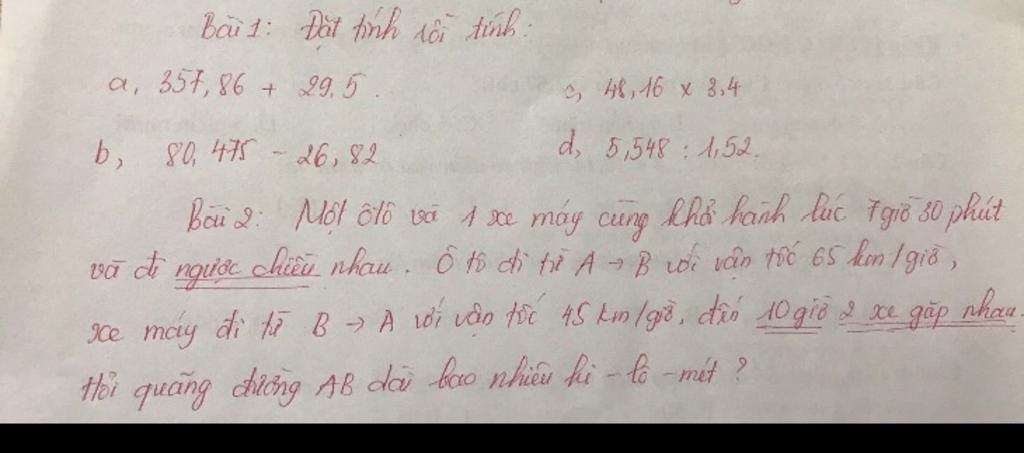 Bài 1: Đặt tính rồi tính:
a, 357,86 + 29,5.
c, 48,16 x 3,4
b, 80,475 - 26,82
d, 5,548 : 1,52.
Bài 2: Một ôtô và 1 xe máy cùng khởi hành lúc 7giờ 30 phút
và đi ngược chiều nhau. Ô tô đi từ A → B với vận tốc 65 km/giờ,
xe máy đi từ B → A với vận tốc 45 km/giờ, đến 10giờ 2 xe gặp nhau.
Hỏi quãng đường AB dài bao nhiêu ki-lô-mét?